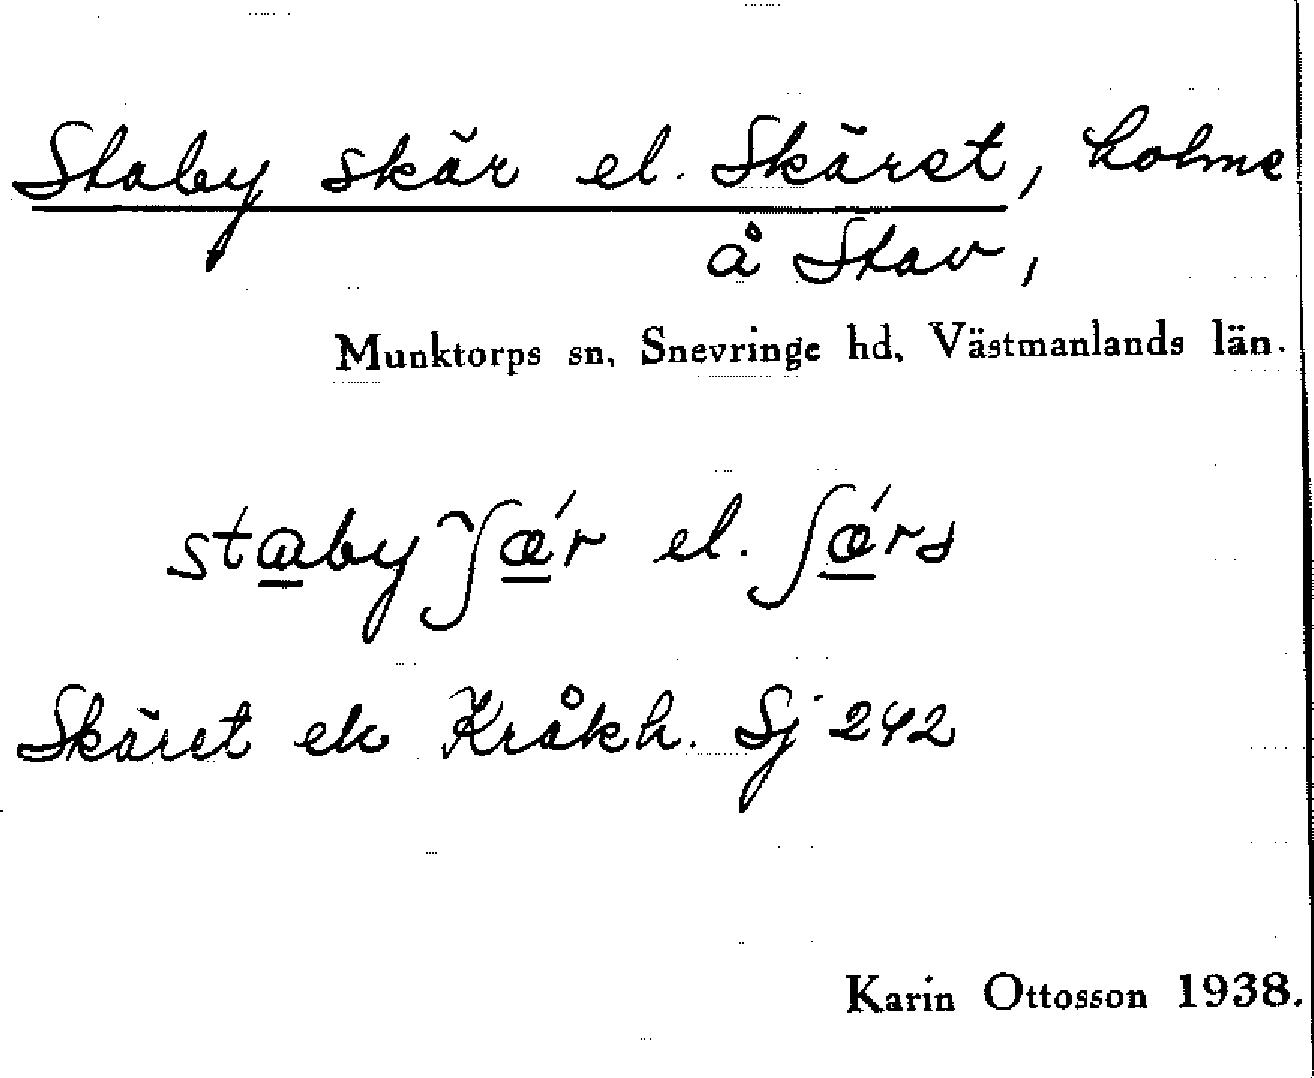 Staby skär el. Skäret, holme
å Stav,
Munktorps sn, Snevringe hd, Västmanlands län.
staby ʃǽr el. ʃǽrs
Skäret ek Kråkh. Sj 242
Karin Ottosson 1938.